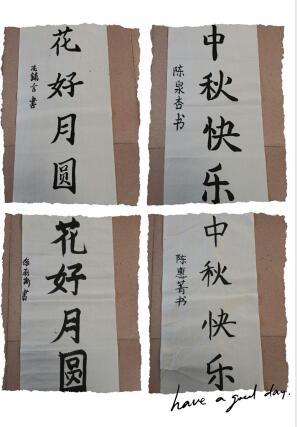 花好月圆
书
中秋快乐
陈泉杏书
花好月圆
书
中秋快乐
陈惠菁书
have a good day.